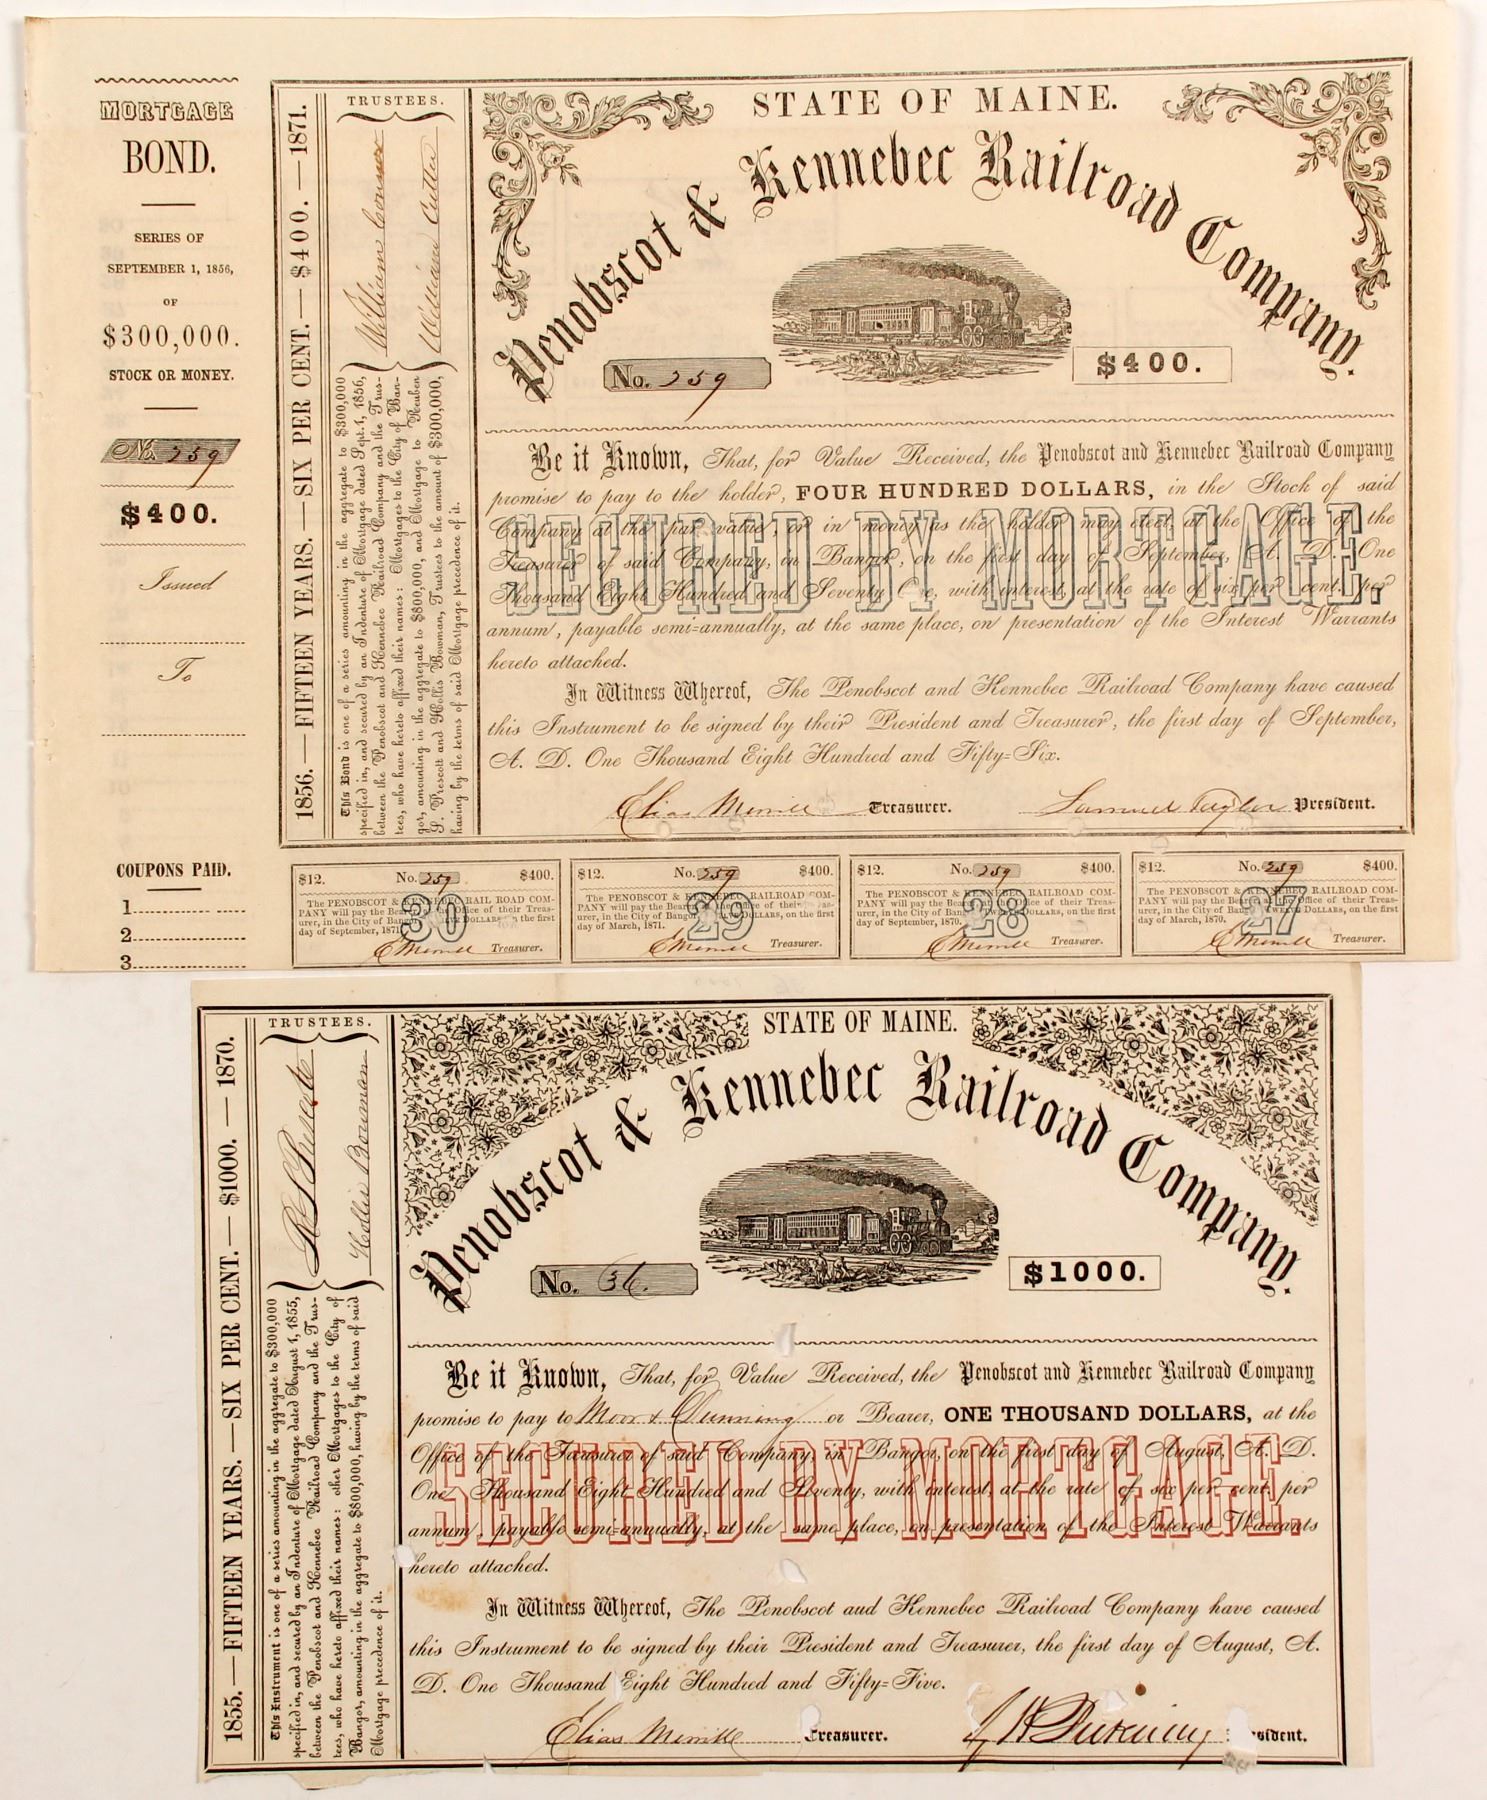 MORTGAGE
BOND.
SERIES OF
SEPTEMBER 1, 1856,
OF
$300,000.
STOCK OR MONEY.
No. 259
$400.
Issued
To
COUPONS PAID.
1
2
3
1856.—FIFTEEN YEARS.—SIX PER CENT.—$400.—1871.
TRUSTEES.
William Conner
William Cutter
This Bond is one of a series amounting in the aggregate to $300,000
specified in, and secured by an Indenture of Mortgage dated Sept. 1, 1856,
between the Penobscot and Kennebec Railroad Company and the Trus-
tees, who have hereto affixed their names: Mortgages to the City of Ban-
gor, amounting in the aggregate to $800,000, and Mortgage to Reuben
S. Prescott and Hollis Bowman, Trustees to the amount of $300,000,
having by the terms of said Mortgage precedence of it.
STATE OF MAINE.
Penobscot & Kennebec Railroad Company.
No. 259
$400.
Be it Known, That, for Value Received, the Penobscot and Kennebec Railroad Company
promise to pay to the holder, FOUR HUNDRED DOLLARS, in the Stock of said
Company at the par value, or in money as the holder may elect, at the Office of the
Treasurer of said Company, in Bangor, on the first day of September, A. D. One
Thousand Eight Hundred and Seventy One, with interest, at the rate of six per cent. per
annum, payable semi-annually, at the same place, on presentation of the Interest Warrants
hereto attached.
SECURED BY MORTGAGE.
In Witness Whereof, The Penobscot and Kennebec Railroad Company have caused
this Instrument to be signed by their President and Treasurer, the first day of September,
A. D. One Thousand Eight Hundred and Fifty-Six.
Elias Merrill Treasurer. Samuel Taylor President.
$12. No. 259 $400.
The PENOBSCOT & KENNEBEC RAIL ROAD COM-
PANY will pay the Bearer at the Office of their Treas-
urer, in the City of Bangor, TWELVE DOLLARS, on the first
day of September, 1871.
30
E Merrill Treasurer.
$12. No. 259 $400.
The PENOBSCOT & KENNEBEC RAILROAD COM-
PANY will pay the Bearer at the Office of their Treas-
urer, in the City of Bangor, TWELVE DOLLARS, on the first
day of March, 1871.
29
E Merrill Treasurer.
$12. No. 259 $400.
The PENOBSCOT & KENNEBEC RAILROAD COM-
PANY will pay the Bearer at the Office of their Treas-
urer, in the City of Bangor, TWELVE DOLLARS, on the first
day of September, 1870.
28
E Merrill Treasurer.
$12. No. 259 $400.
The PENOBSCOT & KENNEBEC RAILROAD COM-
PANY will pay the Bearer at the Office of their Treas-
urer, in the City of Bangor, TWELVE DOLLARS, on the first
day of March, 1870.
27
E Merrill Treasurer.
1855.—FIFTEEN YEARS.—SIX PER CENT.—$1000.—1870.
TRUSTEES.
R S Prescott
Hollis Bowman
This Instrument is one of a series amounting in the aggregate to $300,000
specified in, and secured by an Indenture of Mortgage dated August 1, 1855,
between the Penobscot and Kennebec Railroad Company and the Trus-
tees, who have hereto affixed their names: other Mortgages to the City of
Bangor, amounting in the aggregate to $800,000, having by the terms of said
Mortgage precedence of it.
STATE OF MAINE.
Penobscot & Kennebec Railroad Company.
No. 36.
$1000.
Be it Known, That, for Value Received, the Penobscot and Kennebec Railroad Company
promise to pay to Moor & Dunning or Bearer, ONE THOUSAND DOLLARS, at the
Office of the Treasurer of said Company, in Bangor, on the first day of August, A. D.
One Thousand Eight Hundred and Seventy, with interest, at the rate of six per cent. per
annum, payable semi-annually, at the same place, on presentation of the Interest Warrants
hereto attached.
SECURED BY MORTGAGE.
In Witness Whereof, The Penobscot and Kennebec Railroad Company have caused
this Instrument to be signed by their President and Treasurer, the first day of August, A.
D. One Thousand Eight Hundred and Fifty-Five.
Elias Merrill Treasurer. President.